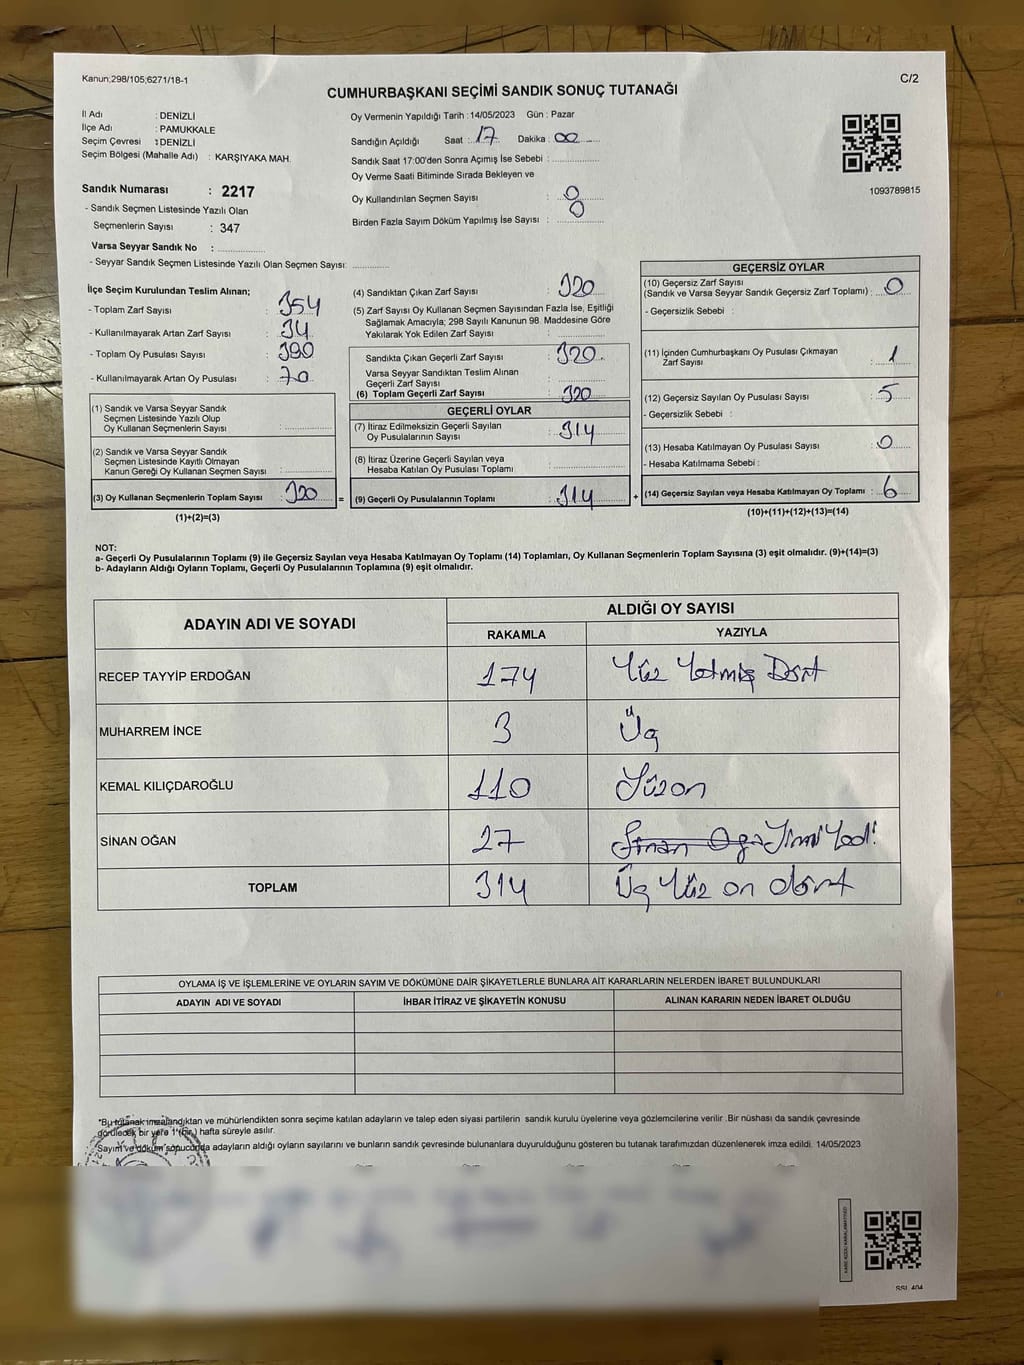 Kanun;298/105;6271/18-1
C/2
CUMHURBAŞKANI SEÇİMİ SANDIK SONUÇ TUTANAĞI
İl Adı : DENİZLİ
İlçe Adı : PAMUKKALE
Seçim Çevresi : DENİZLİ
Seçim Bölgesi (Mahalle Adı) : KARŞIYAKA MAH.
Sandık Numarası : 2217
- Sandık Seçmen Listesinde Yazılı Olan
Seçmenlerin Sayısı : 347
Varsa Seyyar Sandık No :
- Seyyar Sandık Seçmen Listesinde Yazılı Olan Seçmen Sayısı:
Oy Vermenin Yapıldığı Tarih : 14/05/2023 Gün : Pazar
Sandığın Açıldığı Saat : 17 Dakika : 00
Sandık Saat 17:00'den Sonra Açımış İse Sebebi :
Oy Verme Saati Bitiminde Sırada Bekleyen ve
Oy Kullandırılan Seçmen Sayısı : 0
Birden Fazla Sayım Döküm Yapılmış İse Sayısı : 0
1093789815
İlçe Seçim Kurulundan Teslim Alınan;
- Toplam Zarf Sayısı : 354
- Kullanılmayarak Artan Zarf Sayısı : 34
- Toplam Oy Pusulası Sayısı : 390
- Kullanılmayarak Artan Oy Pusulası : 70
(1) Sandık ve Varsa Seyyar Sandık
Seçmen Listesinde Yazılı Olup
Oy Kullanan Seçmenlerin Sayısı :
(2) Sandık ve Varsa Seyyar Sandık
Seçmen Listesinde Kayıtlı Olmayan
Kanun Gereği Oy Kullanan Seçmen Sayısı :
(3) Oy Kullanan Seçmenlerin Toplam Sayısı : 320 =
(1)+(2)=(3)
(4) Sandıktan Çıkan Zarf Sayısı : 320
(5) Zarf Sayısı Oy Kullanan Seçmen Sayısından Fazla İse, Eşitliği
Sağlamak Amacıyla; 298 Sayılı Kanunun 98. Maddesine Göre
Yakılarak Yok Edilen Zarf Sayısı :
Sandıkta Çıkan Geçerli Zarf Sayısı : 320
Varsa Seyyar Sandıktan Teslim Alınan
Geçerli Zarf Sayısı :
(6) Toplam Geçerli Zarf Sayısı : 320
GEÇERLİ OYLAR
(7) İtiraz Edilmeksizin Geçerli Sayılan
Oy Pusulalarının Sayısı : 314
(8) İtiraz Üzerine Geçerli Sayılan veya
Hesaba Katılan Oy Pusulası Toplamı :
(9) Geçerli Oy Pusulalarının Toplamı : 314 +
GEÇERSİZ OYLAR
(10) Geçersiz Zarf Sayısı
(Sandık ve Varsa Seyyar Sandık Geçersiz Zarf Toplamı) : 0
- Geçersizlik Sebebi :
(11) İçinden Cumhurbaşkanı Oy Pusulası Çıkmayan
Zarf Sayısı : 1
(12) Geçersiz Sayılan Oy Pusulası Sayısı : 5
- Geçersizlik Sebebi :
(13) Hesaba Katılmayan Oy Pusulası Sayısı : 0
- Hesaba Katılmama Sebebi :
(14) Geçersiz Sayılan veya Hesaba Katılmayan Oy Toplamı : 6
(10)+(11)+(12)+(13)=(14)
NOT:
a- Geçerli Oy Pusulalarının Toplamı (9) ile Geçersiz Sayılan veya Hesaba Katılmayan Oy Toplamı (14) Toplamları, Oy Kullanan Seçmenlerin Toplam Sayısına (3) eşit olmalıdır. (9)+(14)=(3)
b- Adayların Aldığı Oyların Toplamı, Geçerli Oy Pusulalarının Toplamına (9) eşit olmalıdır.
ADAYIN ADI VE SOYADI
ALDIĞI OY SAYISI
RAKAMLA YAZIYLA
RECEP TAYYİP ERDOĞAN 174 Yüz Yetmiş Dört
MUHARREM İNCE 3 Üç
KEMAL KILIÇDAROĞLU 110 Yüzon
SİNAN OĞAN 27 Sinan Oğa Yirmi Yedi
TOPLAM 314 Üç Yüz on dört
OYLAMA İŞ VE İŞLEMLERİNE VE OYLARIN SAYIM VE DÖKÜMÜNE DAİR ŞİKAYETLERLE BUNLARA AİT KARARLARIN NELERDEN İBARET BULUNDUKLARI
ADAYIN ADI VE SOYADI İHBAR İTİRAZ VE ŞİKAYETİN KONUSU ALINAN KARARIN NEDEN İBARET OLDUĞU
*Bu tutanak imzalandıktan ve mühürlendikten sonra seçime katılan adayların ve talep eden siyasi partilerin sandık kurulu üyelerine veya gözlemcilerine verilir .Bir nüshası da sandık çevresinde
görülecek bir yere 1 (Bir) hafta süreyle asılır.
Sayım ve döküm sonucunda adayların aldığı oyların sayılarını ve bunların sandık çevresinde bulunanlara duyurulduğunu gösteren bu tutanak tarafımızdan düzenlenerek imza edildi. 14/05/2023